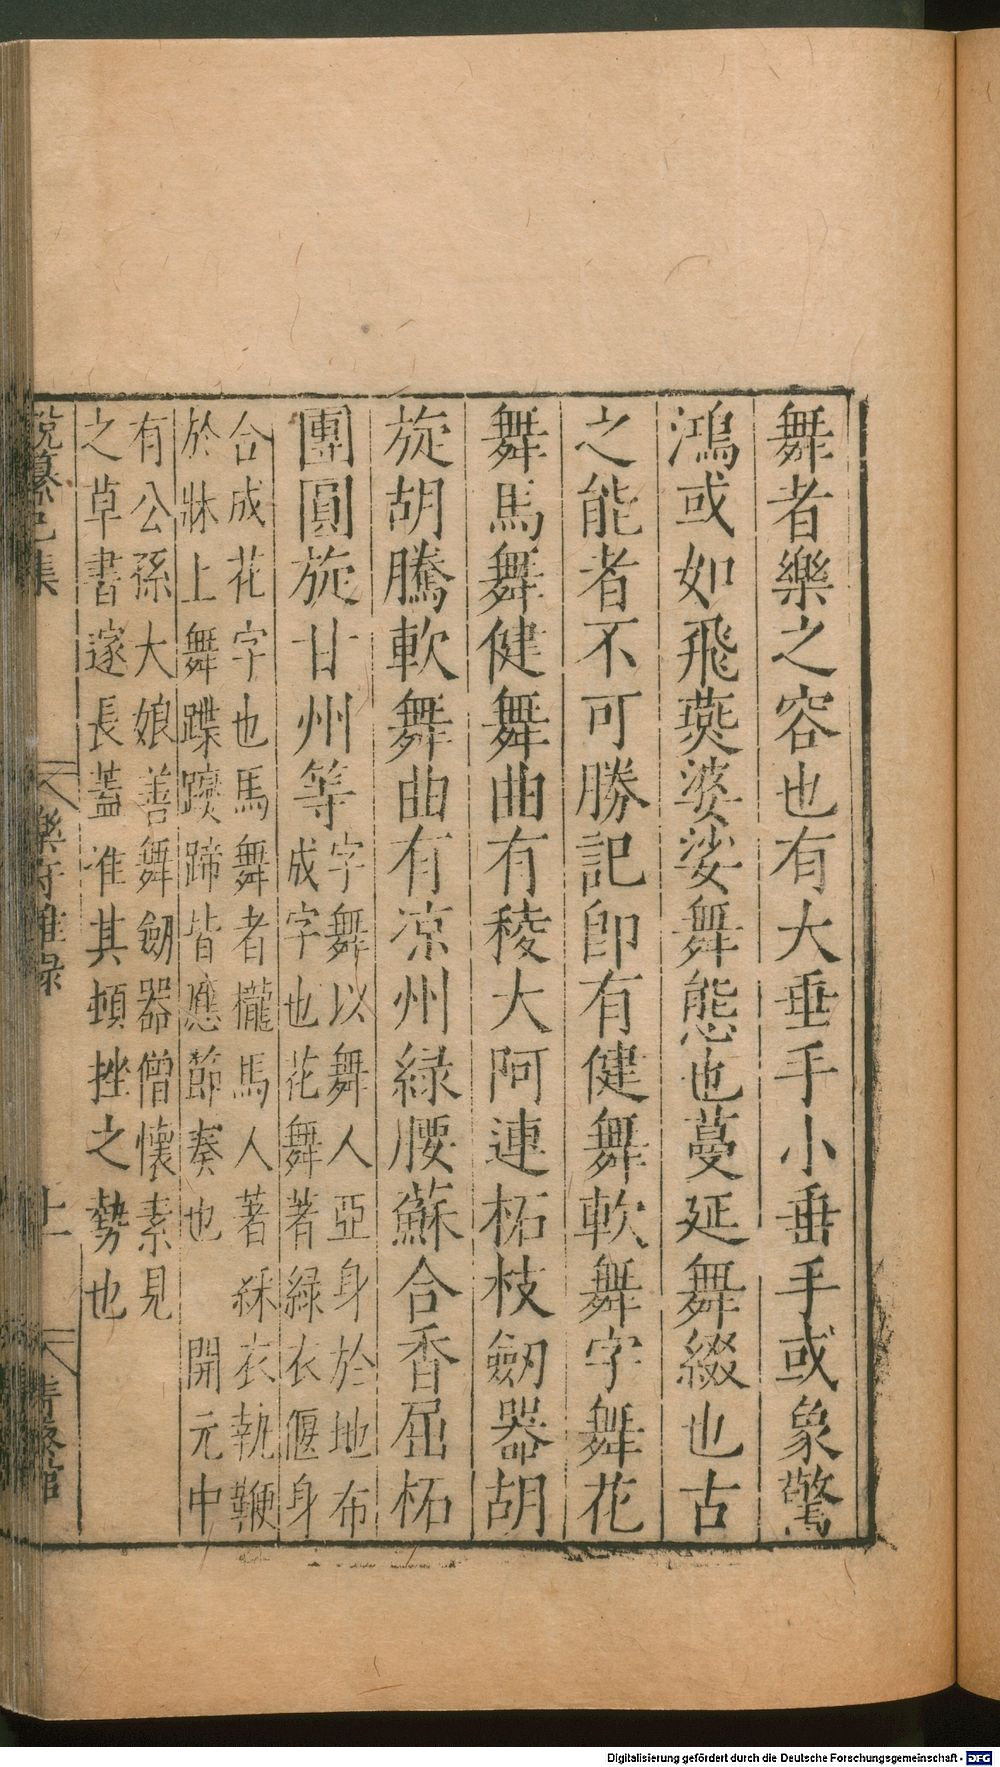 舞者樂之容也有大垂手小垂手或象驚
鴻或如飛燕婆娑舞態也蔓延舞綴也古
之能者不可勝記即有健舞軟舞字舞花
舞馬舞健舞曲有稜大阿連柘枝劒器胡
旋胡騰軟舞曲有凉州緑腰蘇合香屈柘
團圓旋甘州等字舞以舞人亞身於地布
成字也花舞著緑衣偃身
合成花字也馬舞者櫳馬人著綵衣執鞭
於牀上舞蹀躞蹄皆應節奏也 開元中
有公孫大娘善舞劒器僧懷素見
之草書遂長蓋准其頓挫之勢也
說纂巳集 樂府雜録 十一
Digitalisierung gefördert durch die Deutsche Forschungsgemeinschaft - DFG